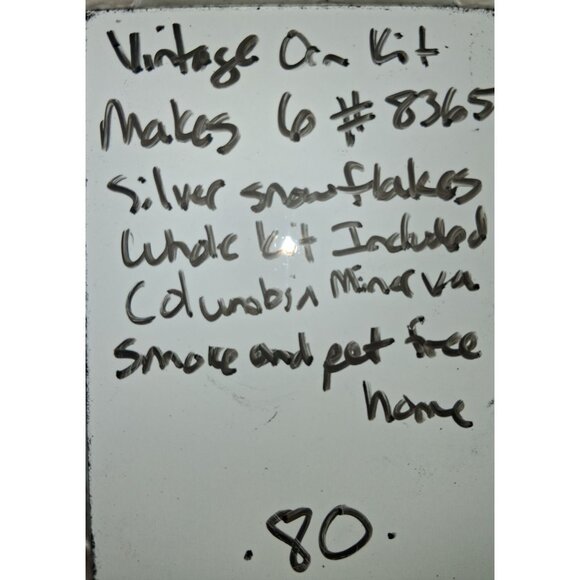 Vintage Orn Kit
Makes 6 # 8365
Silver snowflakes
Whole Kit Included
Columbia Minerva
Smoke and pet free
home
.80.